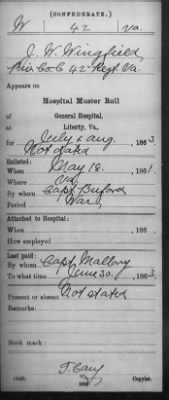 (CONFEDERATE.)
W 42 Va.
J. W. Wingfield
Co. C 42 Regt Va.
Appears on
Hospital Muster Roll
of General Hospital,
at Liberty, Va.,
for July & Aug, 1863
Not dated
Enlisted:
When May 18, 1861
Where Va
By whom Capt Buford
Period War
Attached to Hospital:
When , 186
How employed
Last paid:
By whom Capt Mallory
To what time June 30, 1863
Present or absent Not stated
Remarks:
Book mark:
Copyist.